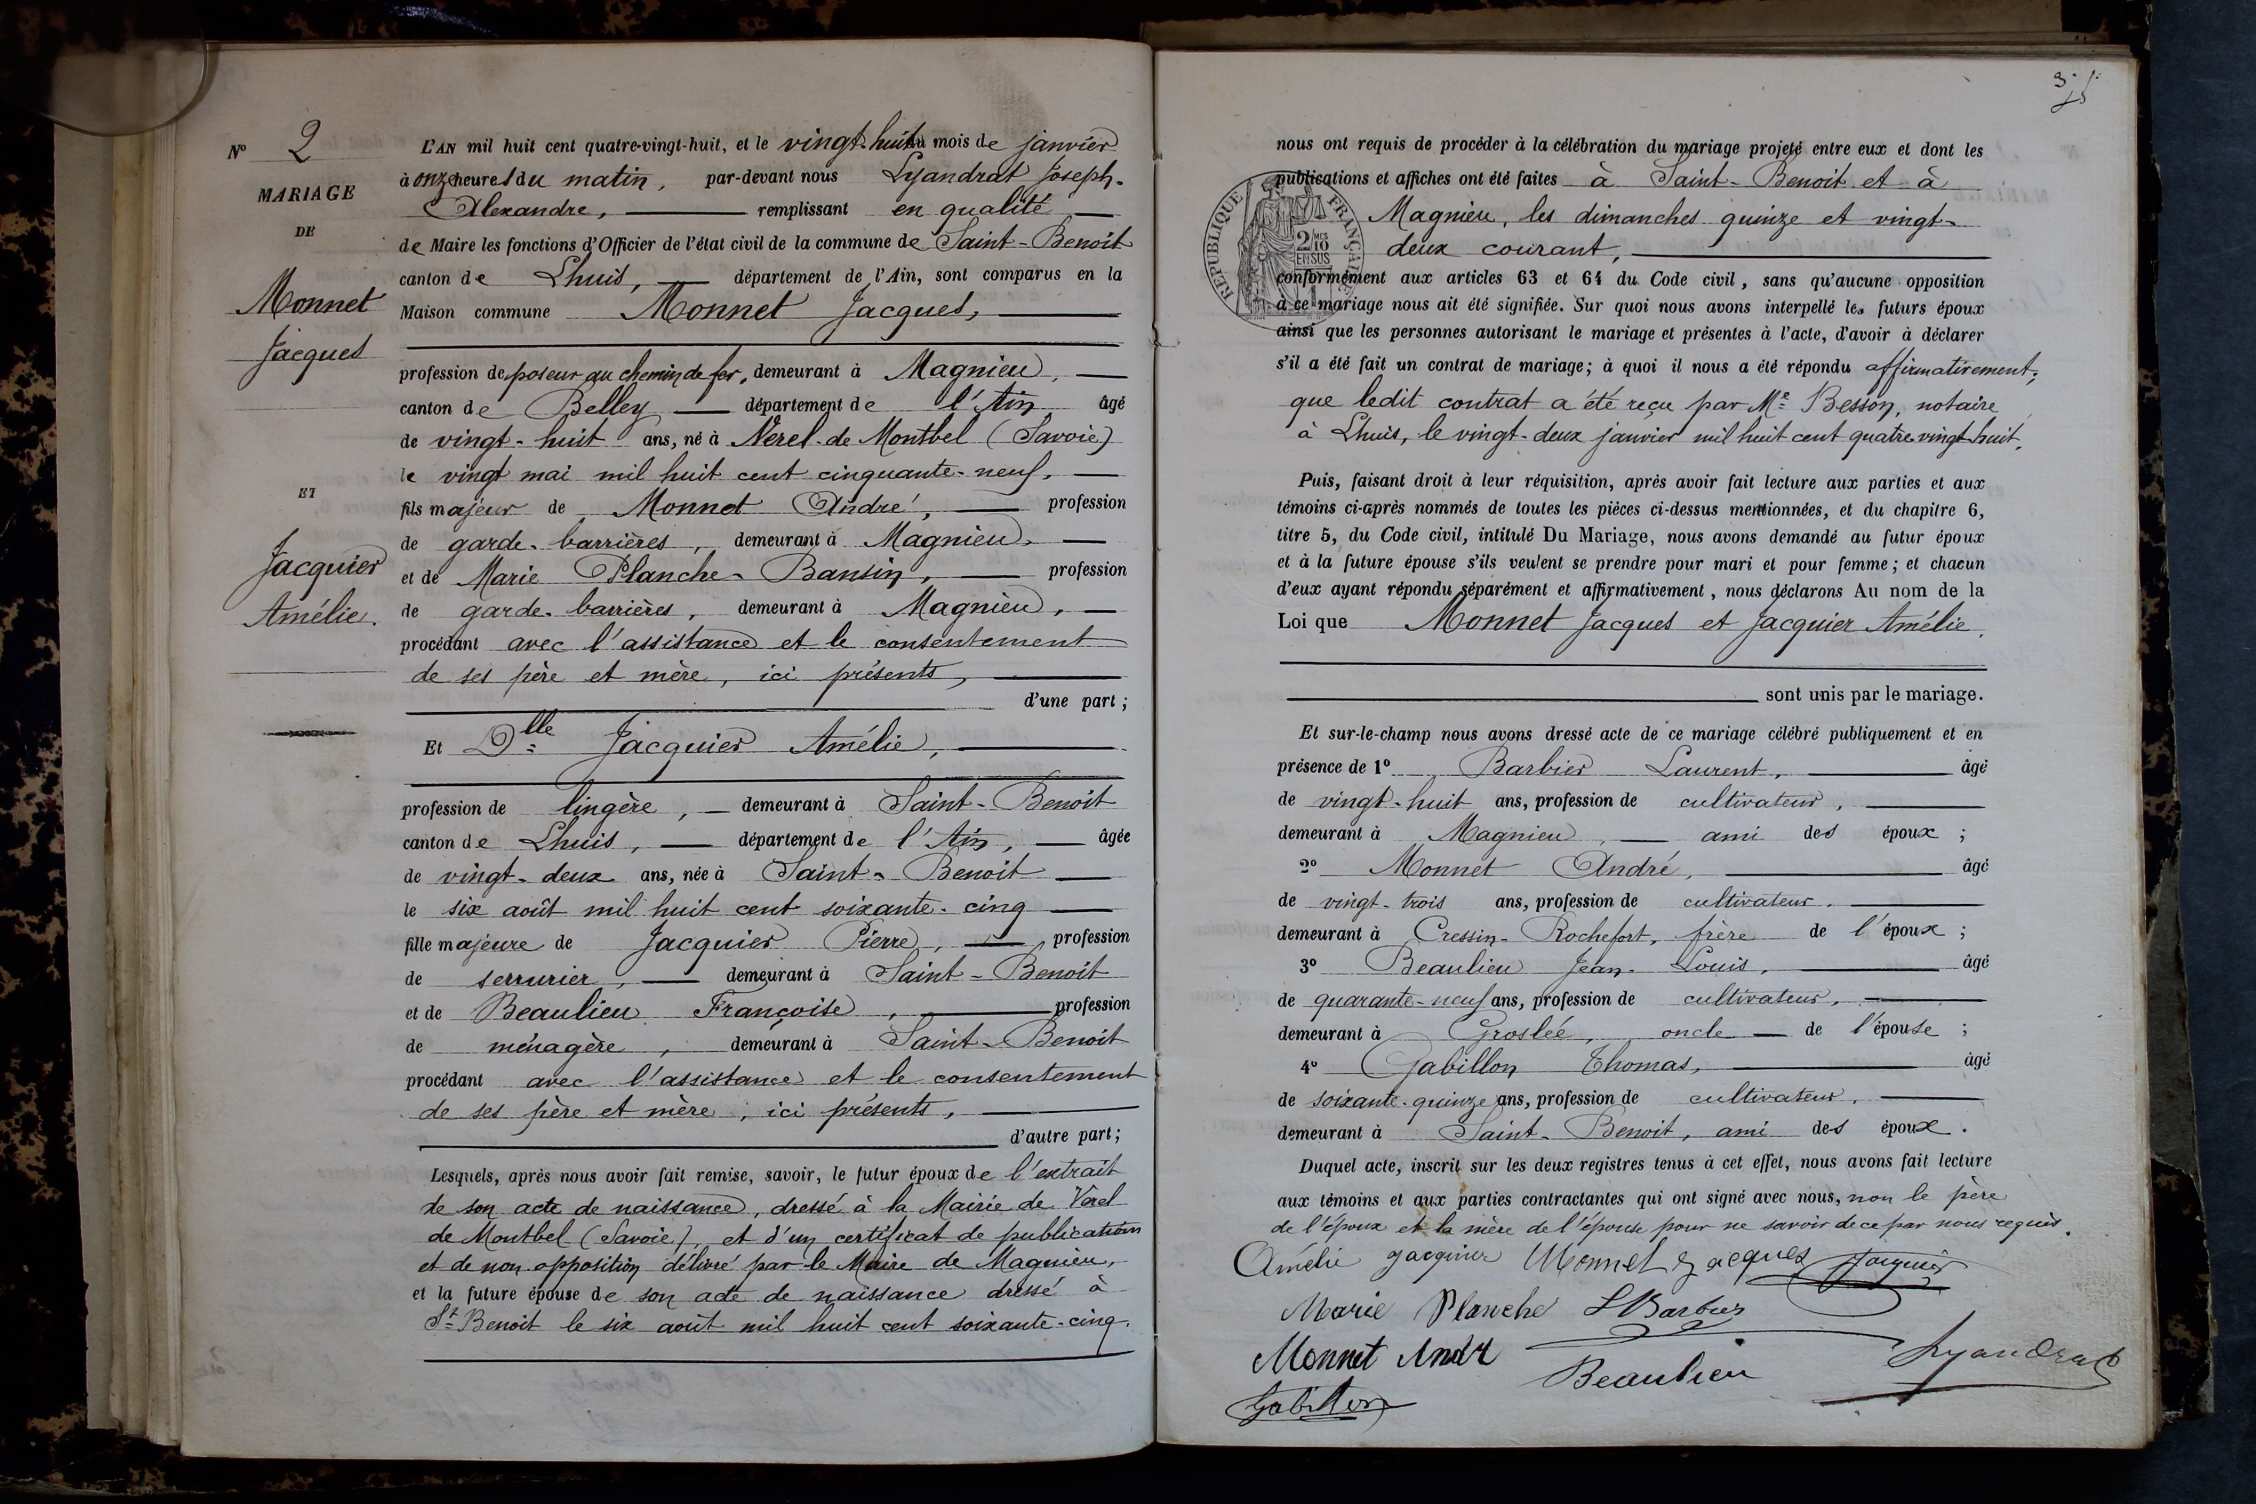 Nº 2
MARIAGE
DE
Monnet
Jacques
ET
Jacquier
Amélie.
L'AN mil huit cent quatre-vingt-huit, et le vingt-huit du mois de janvier
à onze heures du matin, par-devant nous Lyandrat Joseph-
Alexandre, remplissant en qualité
de Maire les fonctions d'Officier de l'état civil de la commune de Saint-Benoit
canton de Lhuis, département de l'Ain, sont comparus en la
Maison commune Monnet Jacques,
profession de poseur au chemin de fer, demeurant à Magnieu,
canton de Belley département de l'Ain âgé
de vingt-huit ans, né à Verel-de Montbel (Savoie)
le vingt mai mil huit cent cinquante-neuf,
fils majeur de Monnet André, profession
de garde-barrières, demeurant à Magnieu,
et de Marie Planche-Bansin, profession
de garde-barrières, demeurant à Magnieu,
procédant avec l'assistance et le consentement
de ses père et mère, ici présents,
d'une part;
Et Dlle Jacquier Amélie,
profession de lingère, demeurant à Saint-Benoit
canton de Lhuis, département de l'Ain, âgée
de vingt-deux ans, née à Saint-Benoit
le six août mil huit cent soixante-cinq
fille majeure de Jacquier Pierre, profession
de serrurier, demeurant à Saint-Benoit
et de Beaulieu Françoise, profession
de ménagère, demeurant à Saint-Benoit
procédant avec l'assistance et le consentement
de ses père et mère, ici présents,
d'autre part;
Lesquels, après nous avoir fait remise, savoir, le futur époux de l'extrait
de son acte de naissance, dressé à la Mairie de Vérel
de Montbel (Savoie), et d'un certificat de publications
et de non opposition délivré par le Maire de Magnieu,
et la future épouse de son acte de naissance dressé à
St Benoit le six août mil huit cent soixante-cinq.
nous ont requis de procéder à la célébration du mariage projeté entre eux et dont les
publications et affiches ont été faites à Saint-Benoit et à
Magnieu, les dimanches quinze et vingt-
deux courant,
RÉPUBLIQUE FRANÇAISE
2/10 EN SUS
conformément aux articles 63 et 64 du Code civil, sans qu'aucune opposition
à ce mariage nous ait été signifiée. Sur quoi nous avons interpellé les futurs époux
ainsi que les personnes autorisant le mariage et présentes à l'acte, d'avoir à déclarer
s'il a été fait un contrat de mariage; à quoi il nous a été répondu affirmativement;
que ledit contrat a été reçu par Me Besson, notaire
à Lhuis, le vingt-deux janvier mil huit cent quatre vingt-huit.
Puis, faisant droit à leur réquisition, après avoir fait lecture aux parties et aux
témoins ci-après nommés de toutes les pièces ci-dessus mentionnées, et du chapitre 6,
titre 5, du Code civil, intitulé Du Mariage, nous avons demandé au futur époux
et à la future épouse s'ils veulent se prendre pour mari et pour femme; et chacun
d'eux ayant répondu séparément et affirmativement, nous déclarons Au nom de la
Loi que Monnet Jacques et Jacquier Amélie,
sont unis par le mariage.
Et sur-le-champ nous avons dressé acte de ce mariage célébré publiquement et en
présence de 1º Barbier Laurent, âgé
de vingt-huit ans, profession de cultivateur,
demeurant à Magnieu, ami des époux;
2º Monnet André, âgé
de vingt-trois ans, profession de cultivateur,
demeurant à Cressin-Rochefort, frère de l'époux;
3º Beaulieu Jean-Louis, âgé
de quarante-neuf ans, profession de cultivateur,
demeurant à Groslée, oncle de l'épouse;
4º Gabillon Thomas, âgé
de soixante-quinze ans, profession de cultivateur,
demeurant à Saint-Benoit, ami des époux.
Duquel acte, inscrit sur les deux registres tenus à cet effet, nous avons fait lecture
aux témoins et aux parties contractantes qui ont signé avec nous, non le père
de l'époux et la mère de l'épouse pour ne savoir de ce par nous requis.
Amélie jacquier Monnet Jacques Jacquier
Marie Planche L Barbier
Monnet André Beaulieu Lyandrat
Gabillon